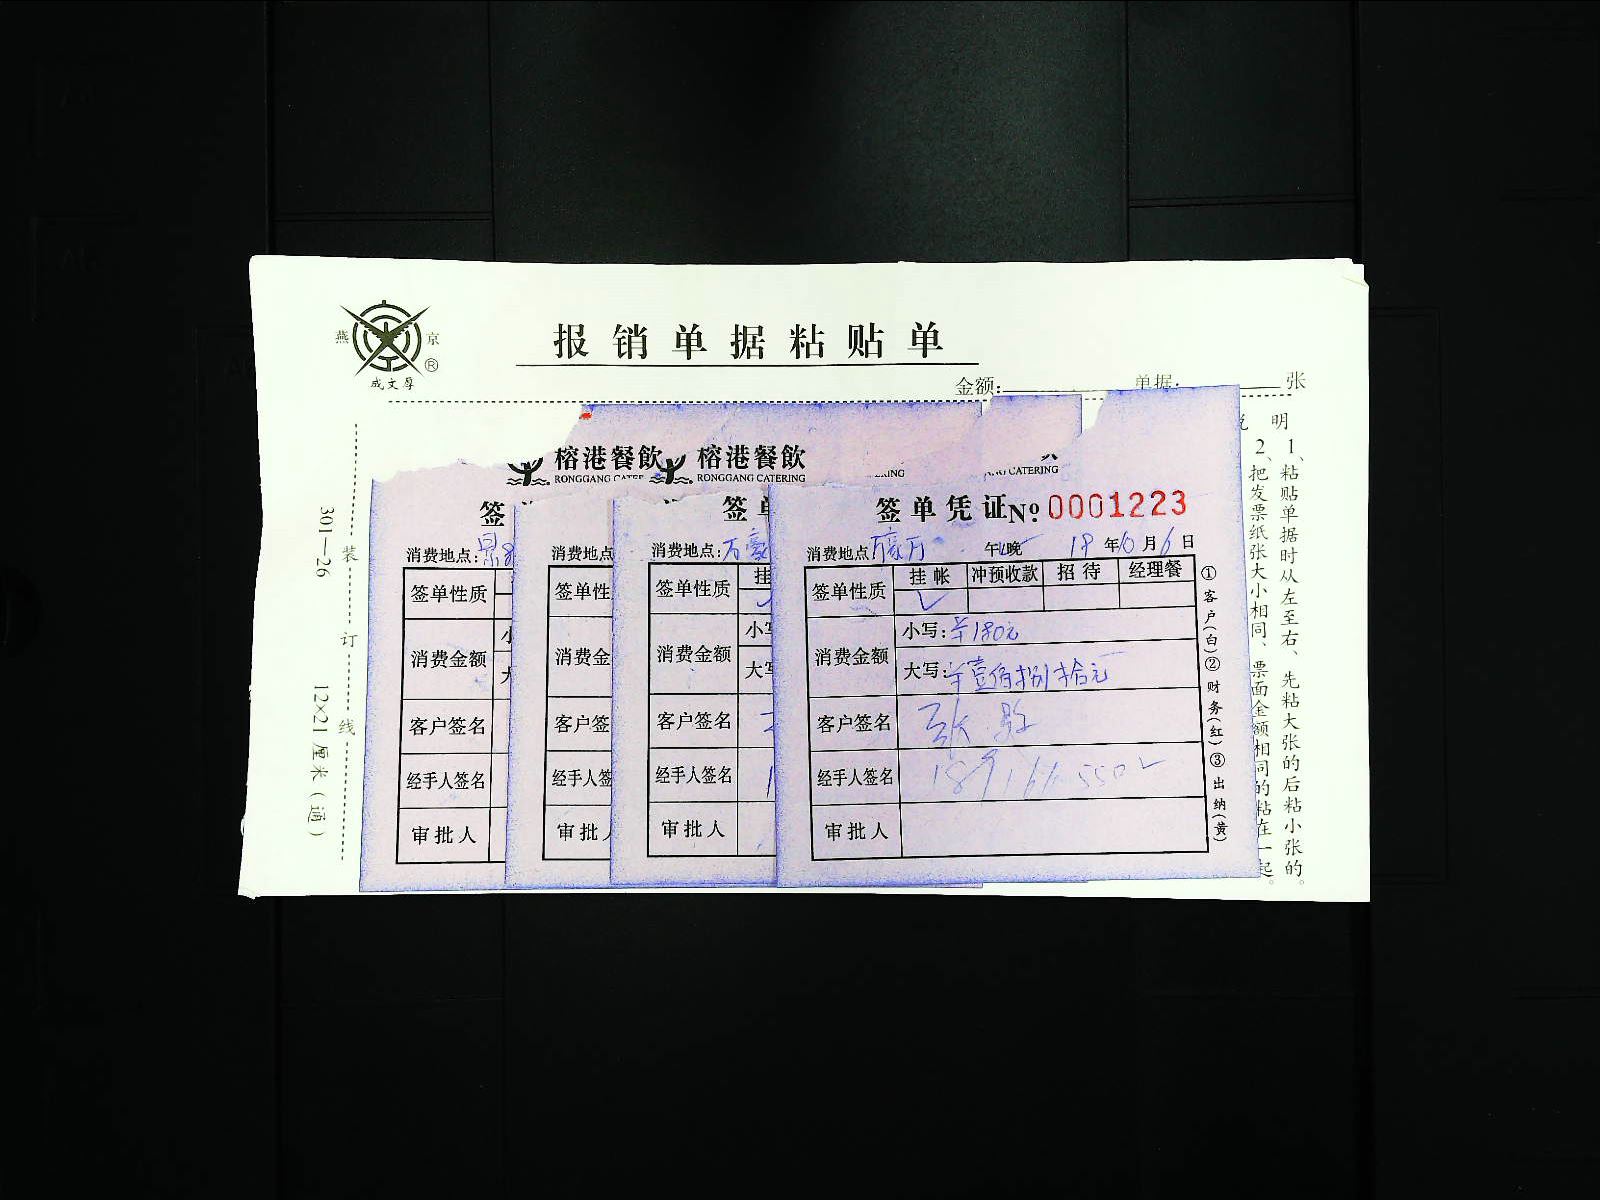 燕 京
®
成文厚
报销单据粘贴单
金额: 单据: 张
说明
1、粘贴单据时从左至右、先粘大张的后粘小张的。
2、把发票纸张大小相同、票面金额相同的粘在一起。
301—26
12×21厘米(通)
装订线
榕港餐飲
RONGGANG CATER
签
消费地点:
签单性质
消费金额
客户签名
经手人签名
审批人
榕港餐飲
RONGGANG CATERING
消费地点
签单性
消费金
客户签
经手人签
审批
签单
消费地点: 万豪
签单性质 挂
消费金额 小写
大写
客户签名
经手人签名
审批人
RING
CATERING
签单凭证 No 0001223
消费地点 万豪万 午晚 18年6月6日
签单性质 挂帐 冲预收款 招待 经理餐
✓
消费金额 小写: ¥180元
大写: ¥壹佰捌拾元
客户签名 张
经手人签名
审批人
①客户(白)②财务(红)③出纳(黄)